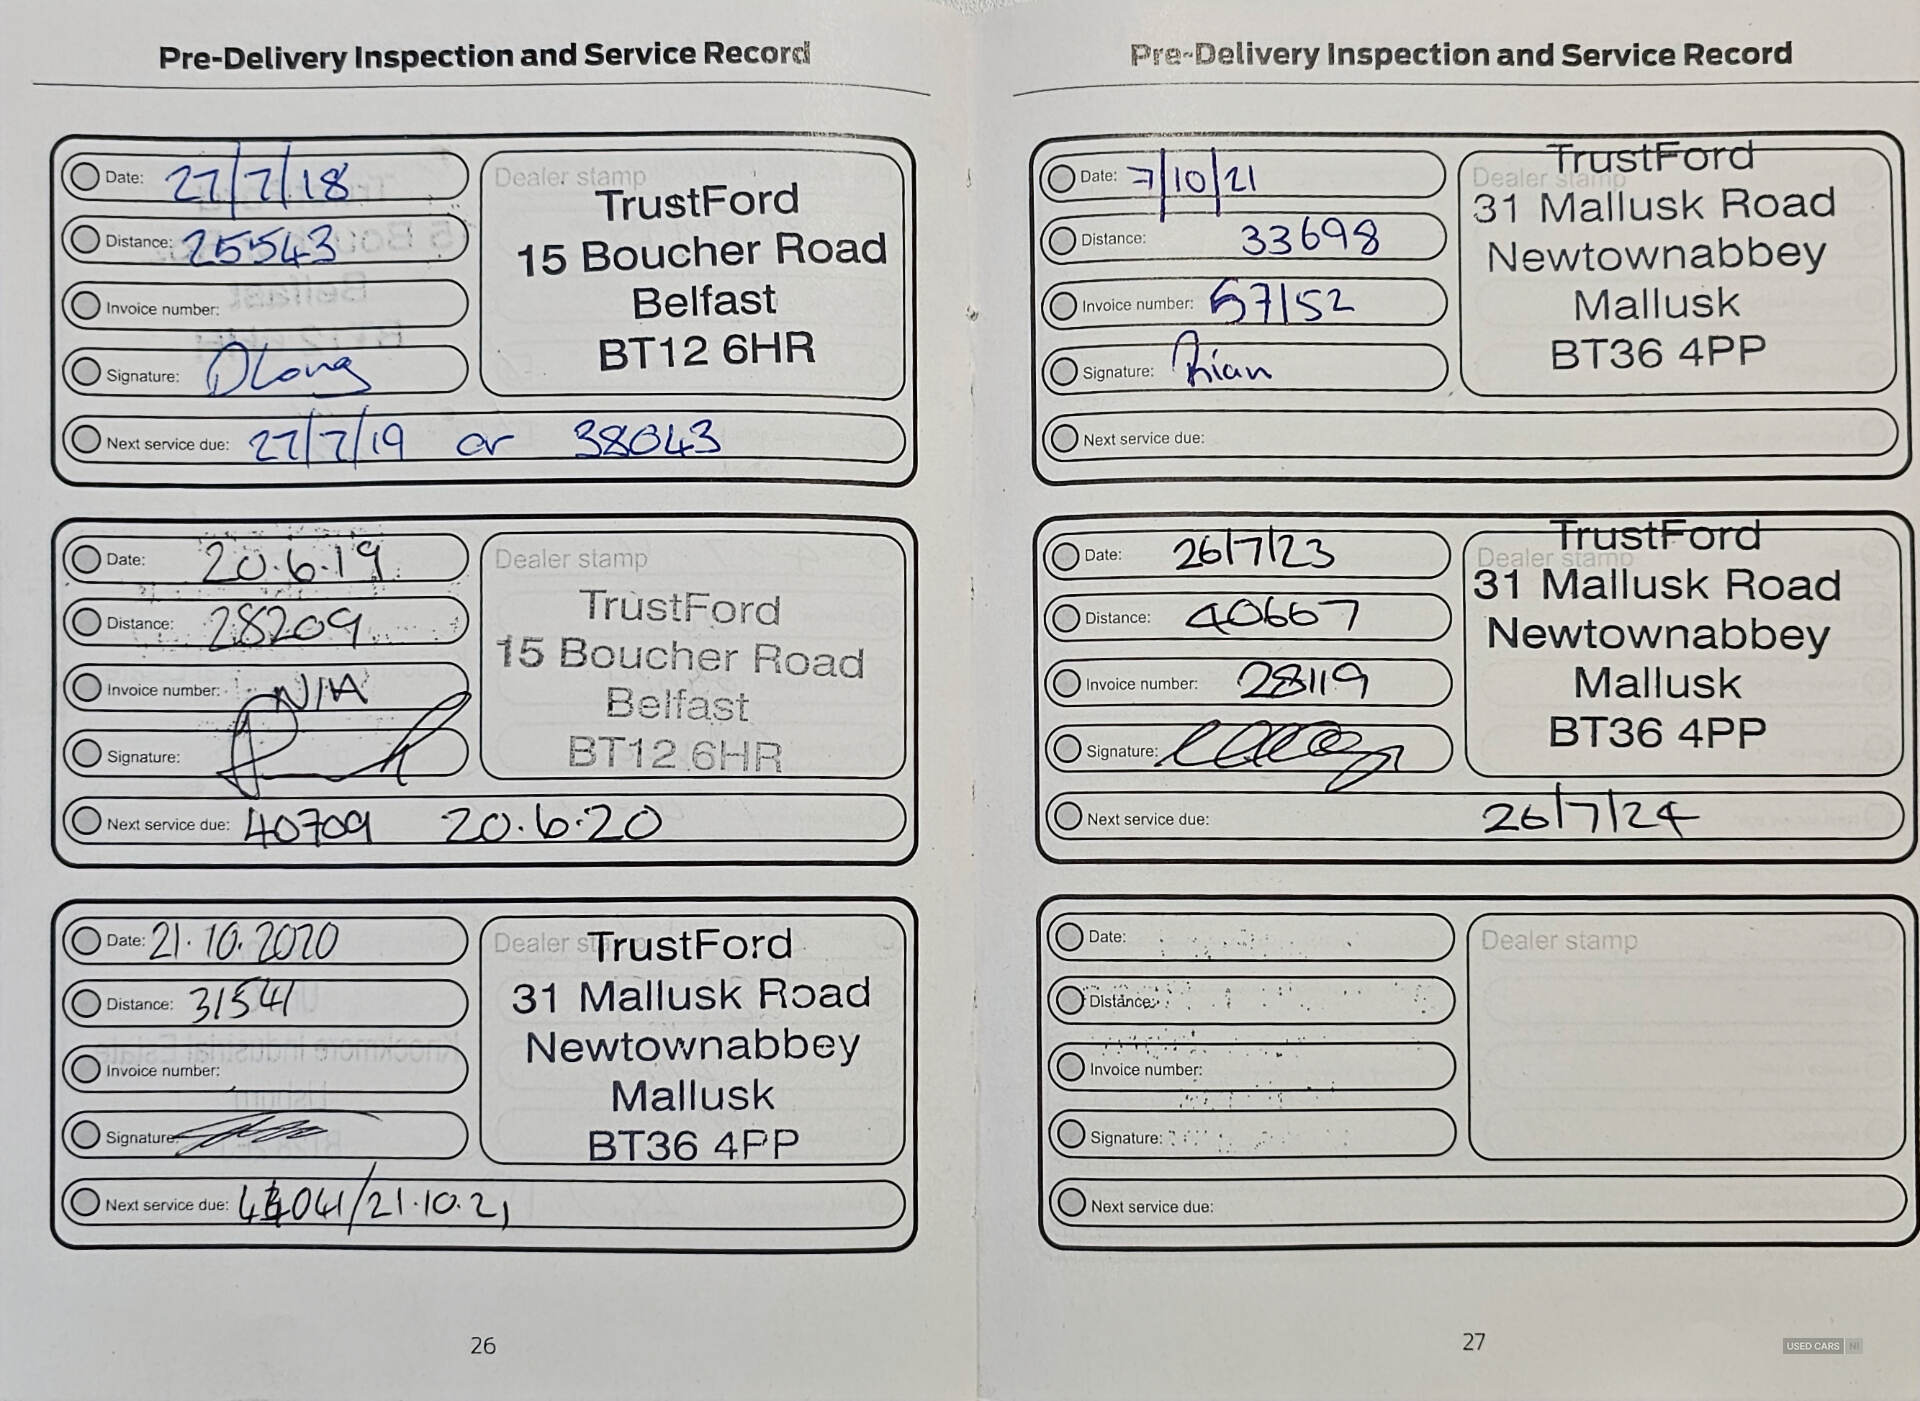 Pre-Delivery Inspection and Service Record
Date: 27/7/18
Distance: 25543
Invoice number:
Signature: DLong
Next service due: 27/7/19 or 38043
Dealer stamp
TrustFord
15 Boucher Road
Belfast
BT12 6HR
Date: 20.6.19
Distance: 28209
Invoice number: N/A
Signature:
Next service due: 40709 20.6.20
Dealer stamp
TrustFord
15 Boucher Road
Belfast
BT12 6HR
Date: 21.10.2020
Distance: 31541
Invoice number:
Signature:
Next service due: 44041/21.10.21
Dealer stamp
TrustFord
31 Mallusk Road
Newtownabbey
Mallusk
BT36 4PP
26
Pre-Delivery Inspection and Service Record
Date: 7/10/21
Distance: 33698
Invoice number: 57152
Signature: Rian
Next service due:
Dealer stamp
TrustFord
31 Mallusk Road
Newtownabbey
Mallusk
BT36 4PP
Date: 26/7/23
Distance: 40667
Invoice number: 28119
Signature:
Next service due: 26/7/24
Dealer stamp
TrustFord
31 Mallusk Road
Newtownabbey
Mallusk
BT36 4PP
Date:
Distance:
Invoice number:
Signature:
Next service due:
Dealer stamp
27
USED CARS NI